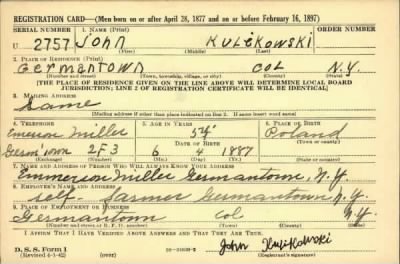 REGISTRATION CARD—(Men born on or after April 28, 1877 and on or before February 16, 1897)
SERIAL NUMBER 1. NAME (Print) ORDER NUMBER
U 2757 John Kulikowski
(First) (Middle) (Last)
2. PLACE OF RESIDENCE (Print)
Germantown Col N.Y.
(Number and street) (Town, township, village, or city) (County) (State)
[THE PLACE OF RESIDENCE GIVEN ON THE LINE ABOVE WILL DETERMINE LOCAL BOARD
JURISDICTION; LINE 2 OF REGISTRATION CERTIFICATE WILL BE IDENTICAL]
3. MAILING ADDRESS
Same
[Mailing address if other than place indicated on line 2. If same insert word same]
4. TELEPHONE 5. AGE IN YEARS 6. PLACE OF BIRTH
Emerson Miller 54 Poland
DATE OF BIRTH (Town or county)
Germ'town 2F3 6 4 1887
(Exchange) (Number) (Mo.) (Day) (Yr.) (State or country)
7. NAME AND ADDRESS OF PERSON WHO WILL ALWAYS KNOW YOUR ADDRESS
Emmerson Miller Germantown, N.Y.
8. EMPLOYER'S NAME AND ADDRESS
self- Farmer Germantown N.Y.
9. PLACE OF EMPLOYMENT OR BUSINESS
Germantown Col N.Y.
(Number and street or R. F. D. number) (Town) (County) (State)
I AFFIRM THAT I HAVE VERIFIED ABOVE ANSWERS AND THAT THEY ARE TRUE.
D. S. S. Form 1
(Revised 4-1-42) (over)
John Kulikowski
(Registrant's signature)